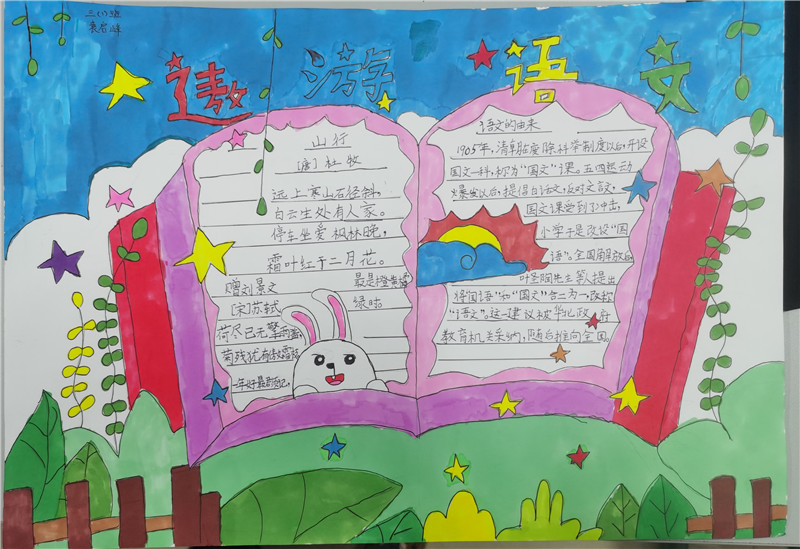 三(1)班
遨游语文
山行
[唐]杜牧
远上寒山石径斜,
白云生处有人家。
停车坐爱枫林晚,
霜叶红于二月花。
赠刘景文
[宋]苏轼
荷尽已无擎雨盖,
菊残犹有傲霜枝
一年好景君记,
最是橙黄橘
绿时
语文的由来
1905年,清朝贴废除科举制度以后,开设
国文一科,称为"国文"课。五四运动
爆发以后,提倡白话文,反对文言文,
国文课受到了冲击,
小学于是改设"国
语"。全国解放后,
叶圣陶先生等人提出
将"国语"和"国文"合二为一,改称
"语文"。这一建议被华北政府
教育机关采纳,随后推向全国。